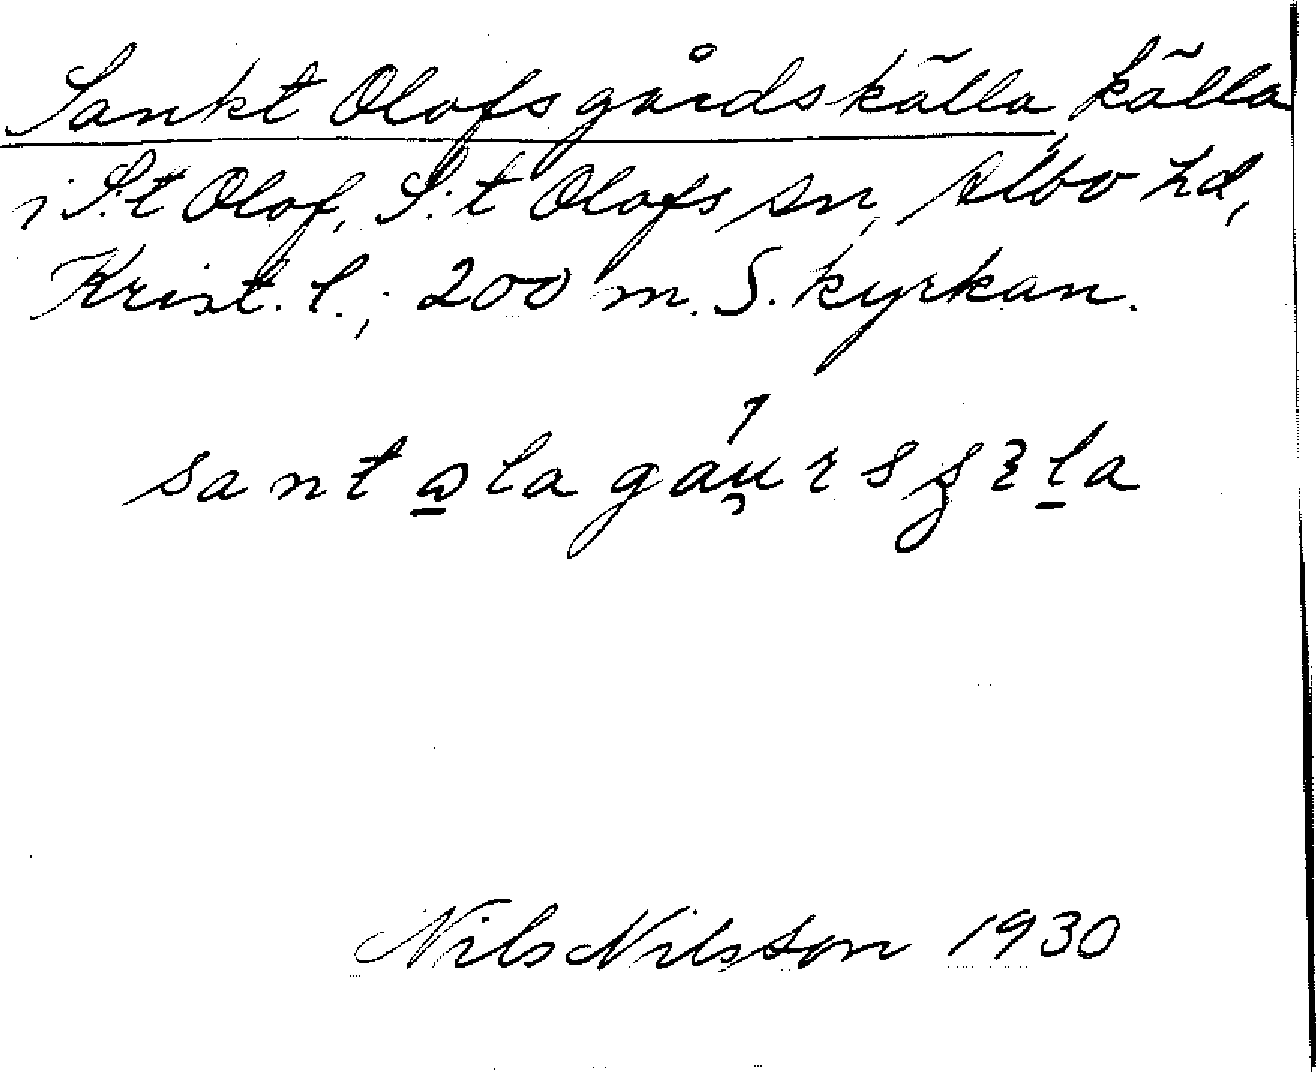 Sankt Olofsgårdskälla, källa
i S:t Olof, S:t Olofs sn, Albo hd,
Krist. l.; 200 m. S. kyrkan.
sant ola gáu̯rs
Nils Nilsson 1930